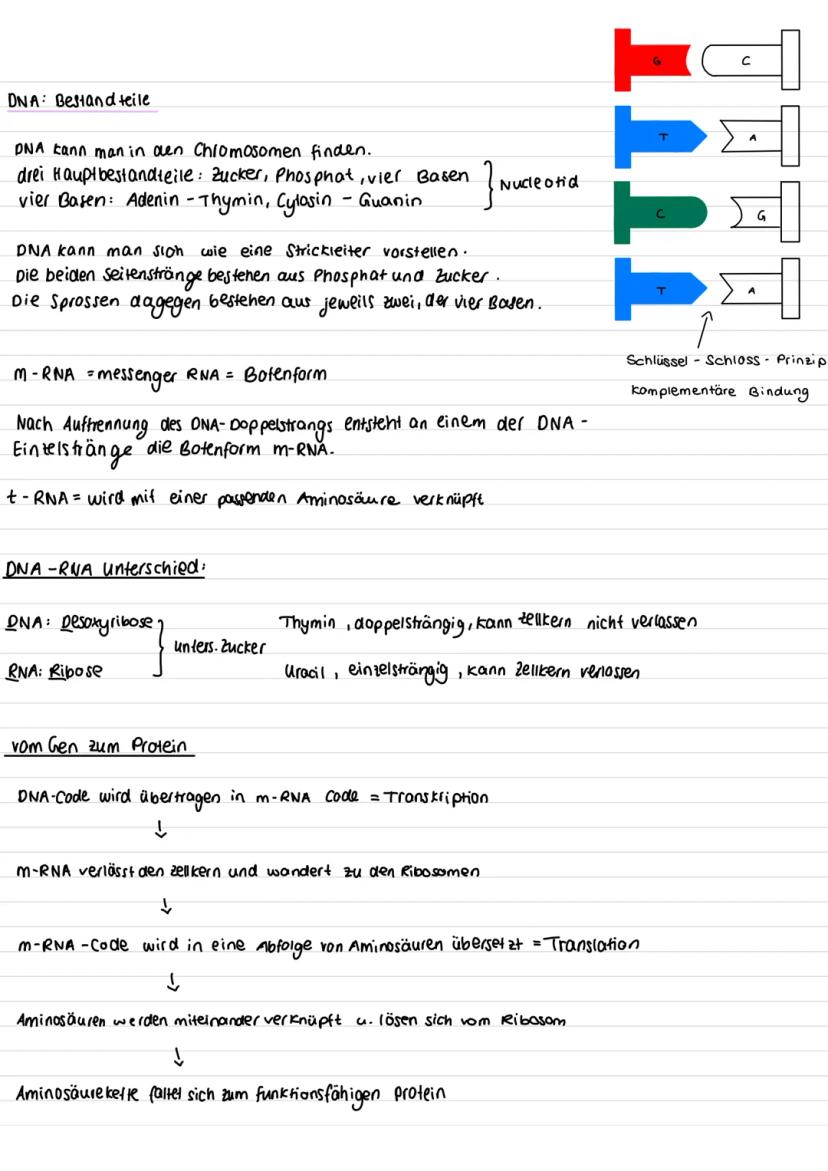 DNA: Bestandteile
DNA kann man in den Chromosomen finden.
drei Hauptbestandteile: Zucker, Phosphat, vier Basen
vier Basen: Adenin - Thymin, Cytosin - Guanin
Nucleotid
DNA kann man sich wie eine Strickleiter vorstellen.
Die beiden Seitenstränge bestehen aus Phosphat und Zucker.
Die Sprossen dagegen bestehen aus jeweils zwei, der vier Basen.
G C
T A
C G
T A
Schlüssel - Schloss - Prinzip
Komplementäre Bindung
m-RNA = messenger RNA = Botenform
Nach Auftrennung des DNA-Doppelstrangs entsteht an einem der DNA-
Einzelstränge die Botenform m-RNA.
t-RNA = wird mit einer passenden Aminosäure verknüpft
DNA-RNA Unterschied:
DNA: Desoxyribose
RNA: Ribose
unters. Zucker
Thymin, doppelsträngig, kann Zellkern nicht verlassen
Uracil, einzelsträngig, kann Zellkern verlassen
vom Gen zum Protein
DNA-Code wird übertragen in m-RNA Code = Transkription
↓
m-RNA verlässt den Zellkern und wandert zu den Ribosomen
↓
m-RNA-Code wird in eine Abfolge von Aminosäuren übersetzt = Translation
↓
Aminosäuren werden miteinander verknüpft u. lösen sich vom Ribosom
↓
Aminosäurekette faltet sich zum funktionsfähigen Protein